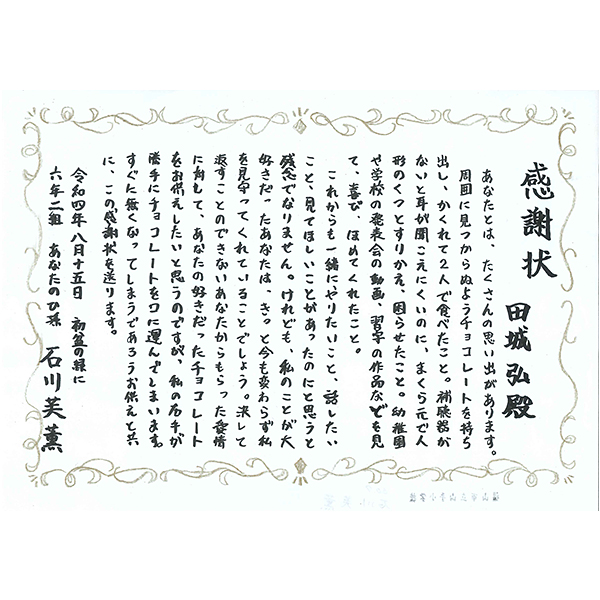 感謝状
田城弘殿
あなたとは、たくさんの思い出があります。
周囲に見つからぬようチョコレートを持ち
出し、かくれて2人で食べたこと。補聴器が
ないと耳が聞こえにくいのに、まくら元で人
形のくつとすりかえ、困らせたこと。幼稚園
や学校の発表会の動画、習字の作品などを見
て、喜び、ほめてくれたこと。
これからも一緒にやりたいこと、話したい
こと、見てほしいことがあったのにと思うと
残念でなりません。けれども、私のことが大
好きだったあなたは、きっと今も変わらず私
を見守ってくれていることでしょう。決して
返すことのできないあなたからもらった愛情
に対して、あなたの好きだったチョコレート
をお供えしたいと思うのですが、私の右手が
勝手にチョコレートを口に運んでしまいます。
すぐに無くなってしまうであろうお供えと共
に、この感謝状を送ります。
令和四年八月十五日 初盆の緑に
六年二組 あなたのひ孫 石川芙薫